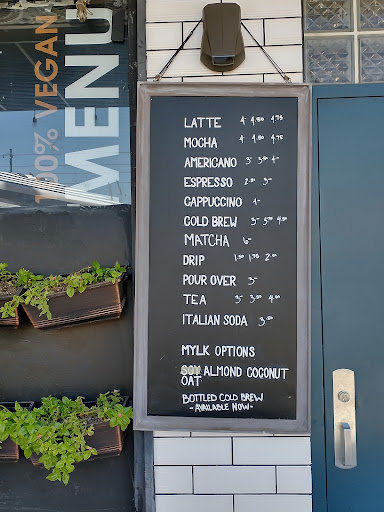 100% VEGAN
MENU
LATTE 4 4.50 4.75
MOCHA 4 4.50 4.75
AMERICANO 3 3.50 4-
ESPRESSO 2.50 3-
CAPPUCCINO 4-
COLD BREW 3- 3.75 4.50
MATCHA 6-
DRIP 1.50 1.75 2.00
POUR OVER 5-
TEA 3- 3.50 4.00
ITALIAN SODA 3.50
MYLK OPTIONS
SOY ALMOND COCONUT
OAT
BOTTLED COLD BREW
-AVAILABLE NOW-